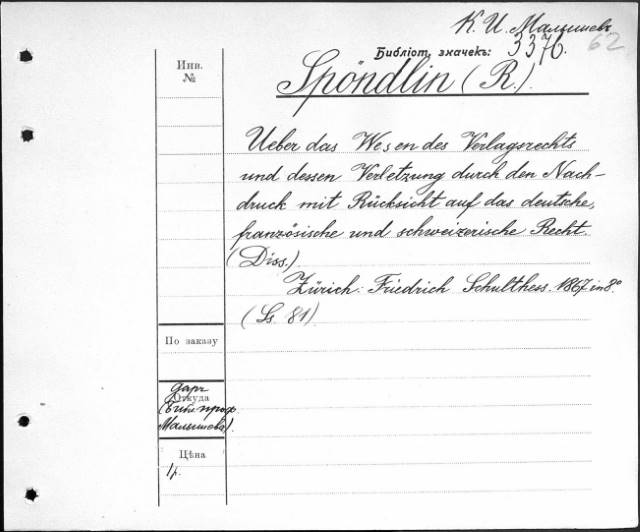 К. И. Малышевъ
Библіот. значекъ: 3376.
62
Инв.
№
Spöndlin (R.).
Ueber das Wesen des Verlagsrechts
und dessen Verletzung durch den Nach-
druck mit Rücksicht auf das deutsche,
französische und schweizerische Recht.
(Diss.).
Zürich. Friedrich Schulthess. 1867 in 8º.
(Ss. 81)
По заказу
даръ
Откуда
(Библ. проф.
Малышева).
Цѣна
1 р.